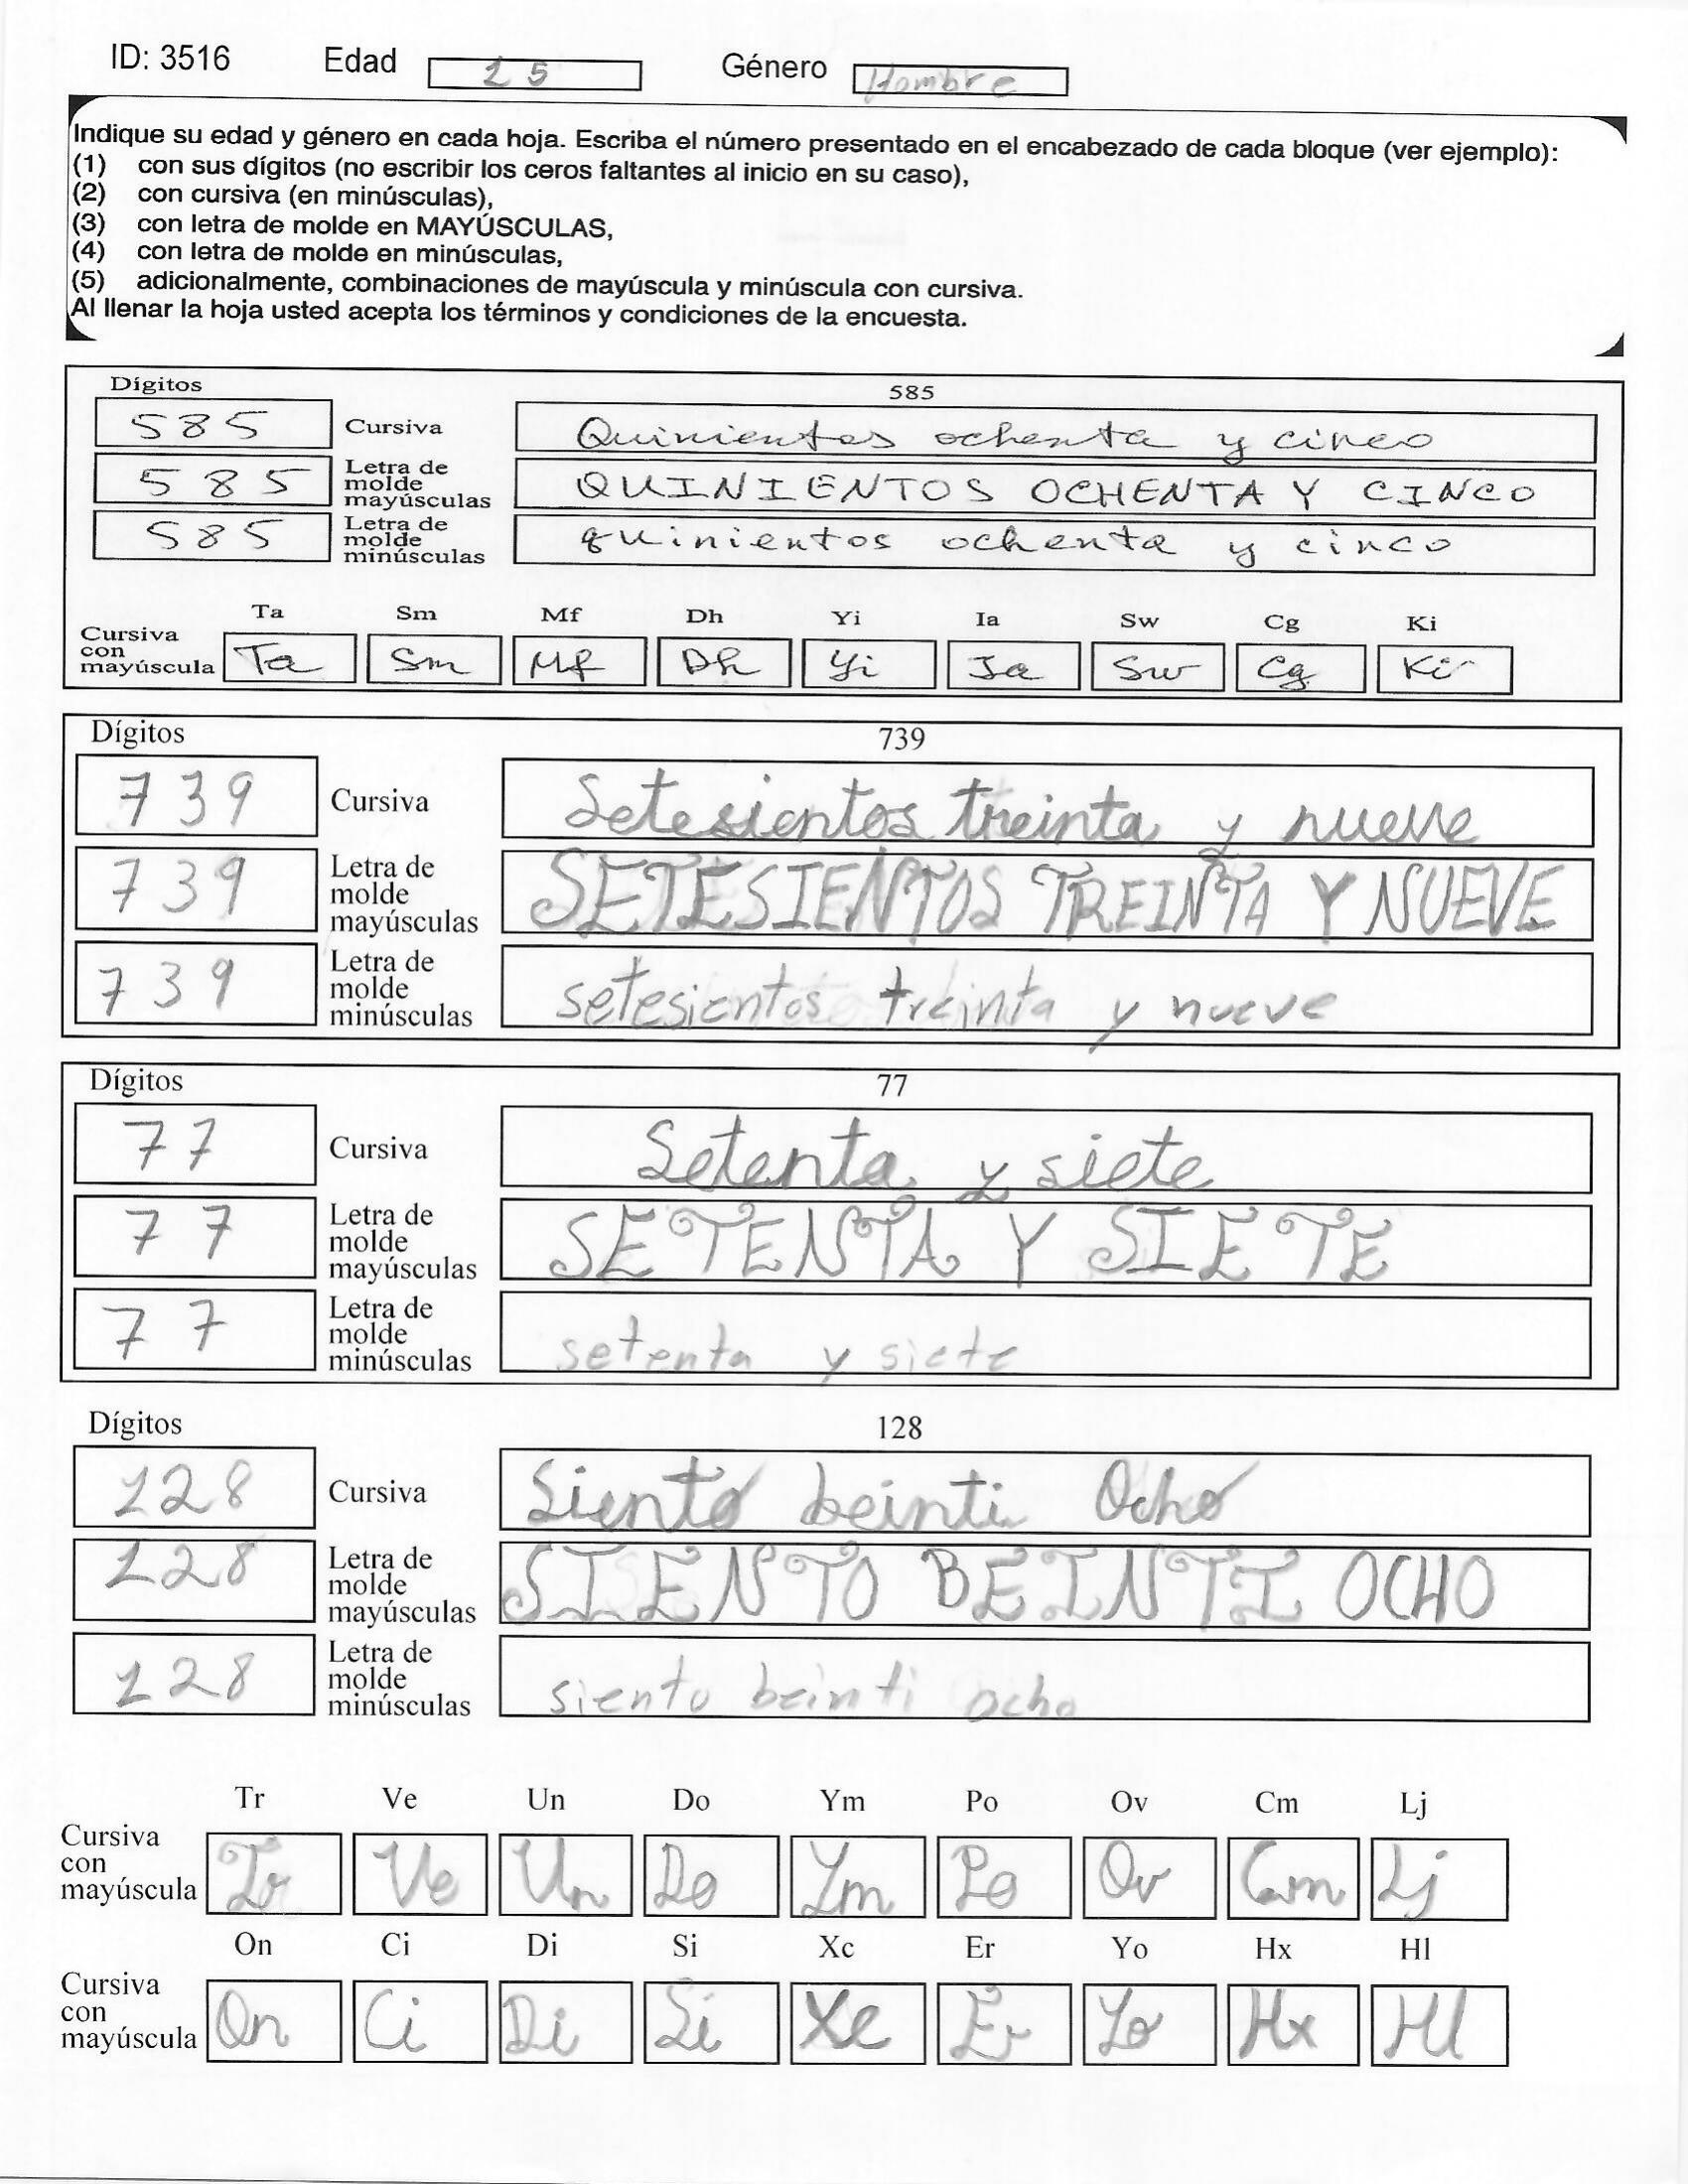 ID: 3516 Edad 15 Género Hombre
Indique su edad y género en cada hoja. Escriba el número presentado en el encabezado de cada bloque (ver ejemplo):
(1) con sus dígitos (no escribir los ceros faltantes al inicio en su caso),
(2) con cursiva (en minúsculas),
(3) con letra de molde en MAYÚSCULAS,
(4) con letra de molde en minúsculas,
(5) adicionalmente, combinaciones de mayúscula y minúscula con cursiva.
Al llenar la hoja usted acepta los términos y condiciones de la encuesta.
Dígitos 585
585 Cursiva Quinientos ochenta y cinco
585 Letra de molde mayúsculas QUINIENTOS OCHENTA Y CINCO
585 Letra de molde minúsculas quinientos ochenta y cinco
Ta Sm Mf Dh Yi Ia Sw Cg Ki
Cursiva con mayúscula Ta Sm Mf Dh Yi Ia Sw Cg Ki
Dígitos 739
739 Cursiva Setesientos treinta y nueve
739 Letra de molde mayúsculas SETESIENTOS TREINTA Y NUEVE
739 Letra de molde minúsculas setesientos treinta y nueve
Dígitos 77
77 Cursiva Setenta y siete
77 Letra de molde mayúsculas SETENTA Y SIETE
77 Letra de molde minúsculas setenta y siete
Dígitos 128
128 Cursiva Siento beinti Ocho
128 Letra de molde mayúsculas SIENTO BEINTI OCHO
128 Letra de molde minúsculas siento beinti ocho
Tr Ve Un Do Ym Po Ov Cm Lj
Cursiva con mayúscula Tr Ve Un Do Ym Po Ov Cm Lj
On Ci Di Si Xc Er Yo Hx Hl
Cursiva con mayúscula On Ci Di Si Xc Er Yo Hx Hl